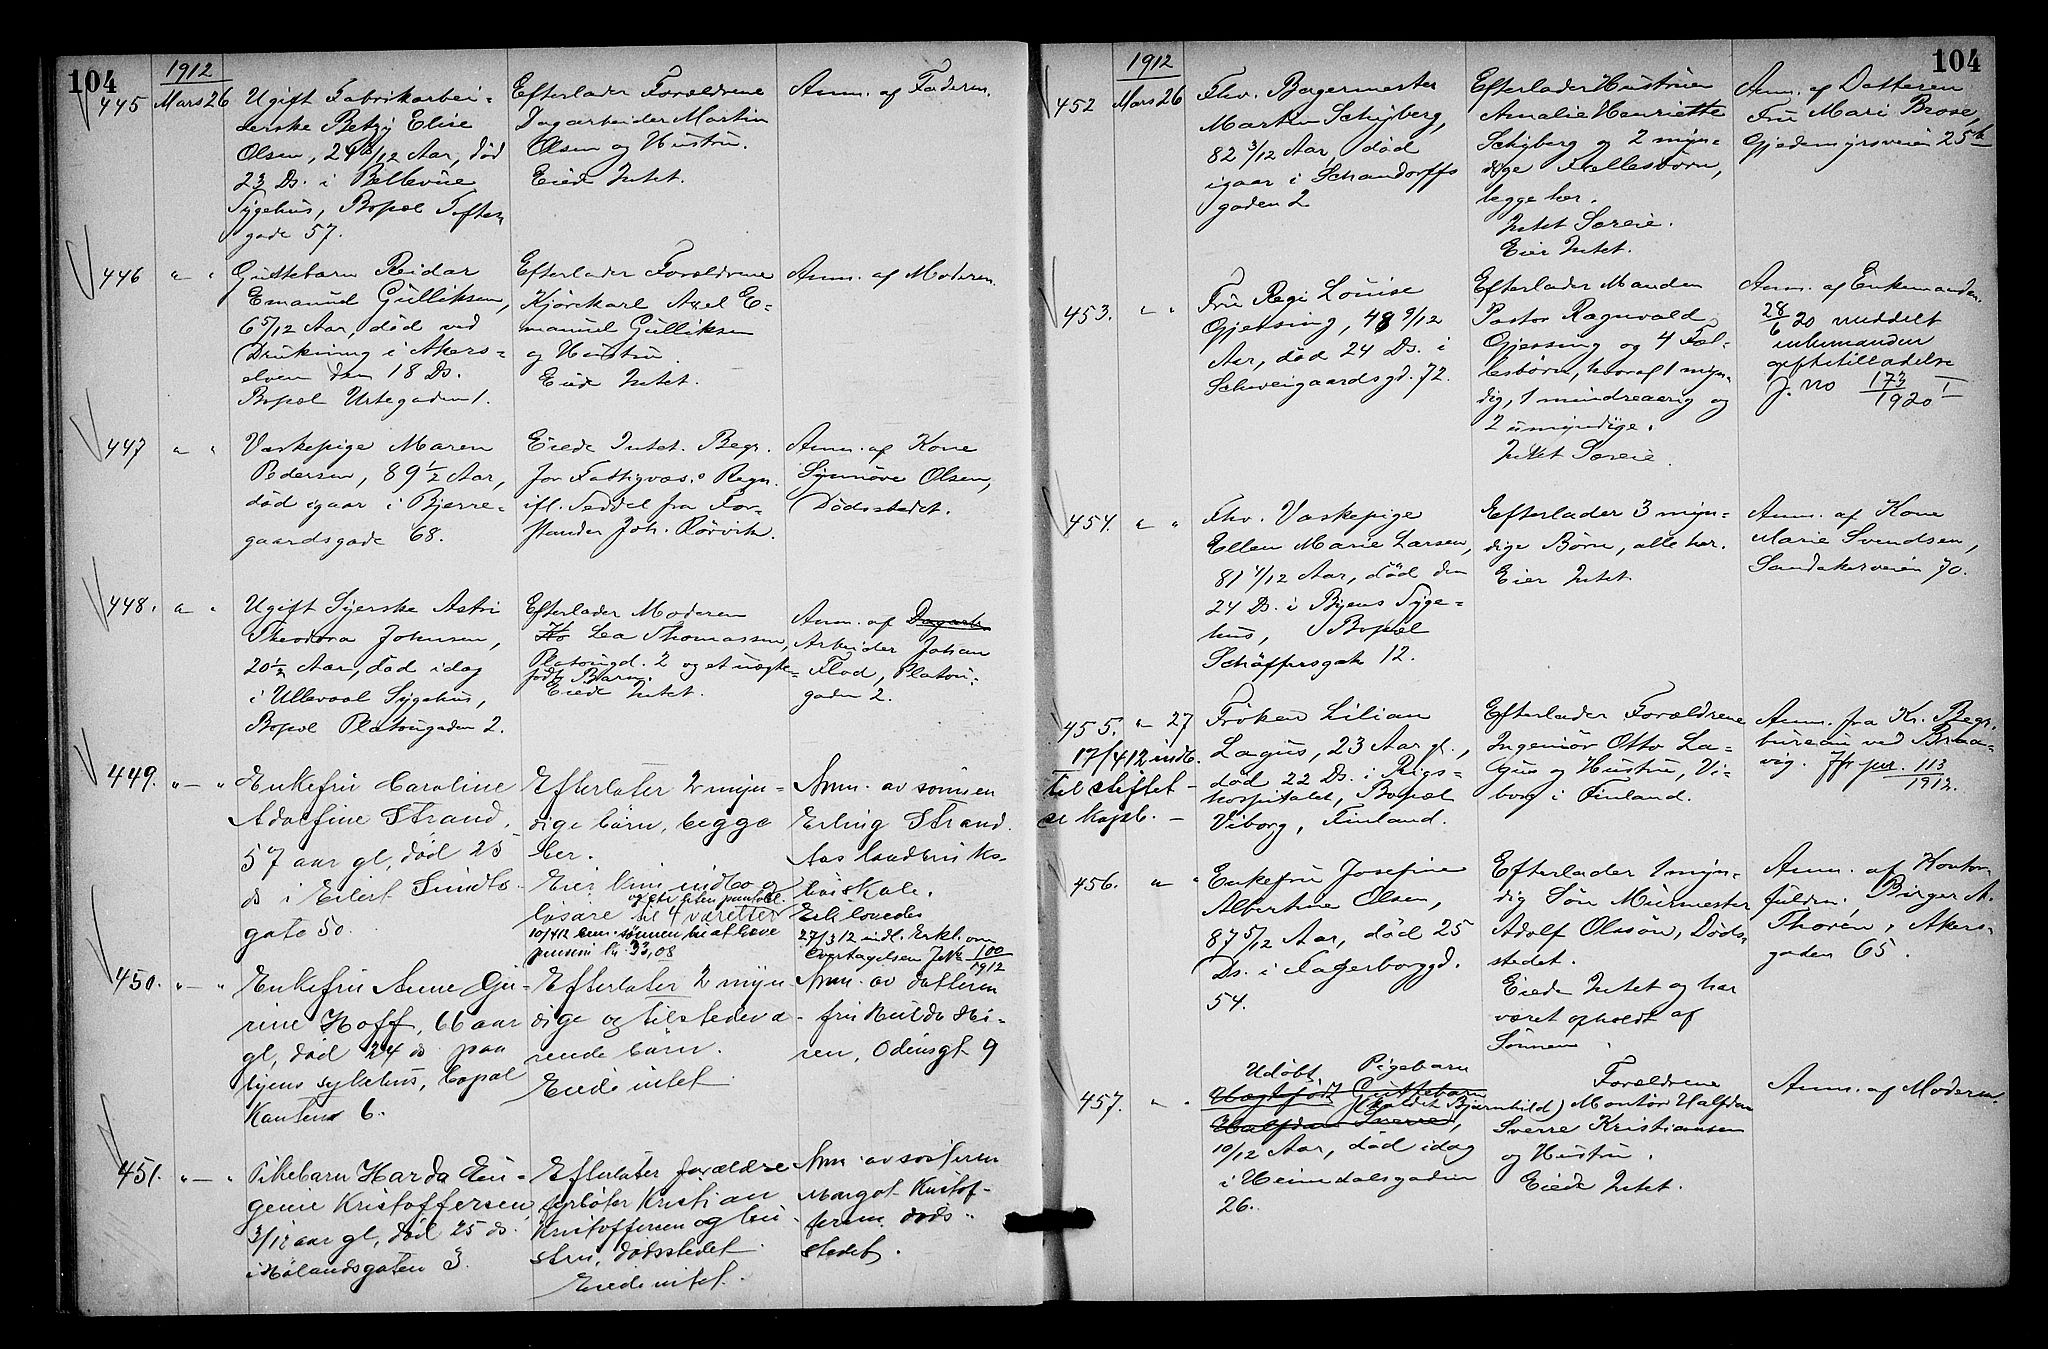 104
1912
445 Mars 26
Ugift Fabrikarbei-
derske Betzy Elise
Olsen, 24 /12 Aar, død
23 Ds. i Bellevue
Sygehus, Bopæl Toftes
gade 57.
Efterlader Forældrene
Dagarbeider Martin
Olsen og Hustru.
Eiede Intet.
Anm. af Faderen.
446 " "
Guttebarn Reidar
Emanuel Gulliksen,
6 5/12 Aar, død ved
Drukning i Akers-
elven den 18 Ds.
Bopæl Urtegaden 1.
Efterlader Forældrene
Kjørekarl Axel E-
manuel Gulliksen
og Hustru.
Eiede Intet.
Anm. af Moderen.
447 " "
Vaskepige Maren
Pedersen, 89 1/2 Aar,
død igaar i Bjerre-
gaardsgade 68.
Eiede Intet. Begr.
for Fattigvæs. Regn.
ifl. Seddel fra For-
stander Joh. Rørvik.
Anm. af Kone
Synnøve Olsen,
Dødsstedet.
448. " "
Ugift Syerske Astri
Theodora Johnsen,
20 1/2 Aar, død idag
i Ullevaal Sygehus,
Bopæl Platougaden 2.
Efterlader Moderen
Ko Lea Thomassen,
Platougd. 2 og et uægte-
født Barn.
Eiede Intet.
Anm. af Dagarb.
Arbeider Johan
Flod, Platou-
gaden 2.
449. " — "
Enkefru Caroline
Adolfine Strand,
57 aar gl, død 25
ds i Eilert Sundts
gate 50.
Efterlater 2 myn-
dige børn, begge
her.
Eier kun indbo og
og etc liten pantobl.
løsøre til 4 værelser
10/4 12 anm. sønnen at hæve
pension kr. 33,08
Anm. av sønnen
Erling Strand.
Aas landbruks-
høiskole.
27/3 12 indl. Erkl. om
Overtagelsen J.No 100
1912
450. " — "
Enkefru Anne Gu-
rine Hoff, 66 aar
gl, død 24 ds paa
byens sykehus, bopæl
Kanten 6.
Efterlater 2 myn
dige og tilstedevæ-
rende børn.
Eiede intet.
Anm. av datteren
fru Hulda Hi-
ren, Odinsgt 9
451. " — "
Pikebarn Harda Eu-
genie Kristoffersen
3/12 aar gl, død 25 ds
i Hølandsgaten 3.
Efterlater forældre
fyrbøter Kristian
Kristoffersen og hu-
stru, dødsstedet.
Eiede intet.
Anm. av søsteren
Margot Kristof-
fersen døds-
stedet.
104
1912
452 Mars 26
Fhv. Bagermester
Martin Schyberg,
82 3/12 Aar, død
igaar i Schandorffs
gaden 2
Efterlader Hustruen
Amalie Henriette
Schyberg og 2 myn-
dige Fællesbørn,
begge her.
Intet Særeie.
Eier Intet.
Anm. af Datteren
Fru Mari Brose,
Gjedemyrsveien 25 b
453. " "
Fru Regi Louise
Gjessing, 48 9/12
Aar, død 24 Ds. i
Schweigaardsgd. 72.
Efterlader Manden
Pastor Ragnvald
Gjessing og 4 Fæl-
lesbørn, hvoraf 1 myn-
dig, 1 mindreaarig og
2 umyndige.
Intet Særeie.
Anm. af Enkemanden.
28/6 20 meddelt
enkemanden
giftetilladelse
J. no 173/1920 I
454. " "
Fhv. Vaskepige
Ellen Marie Larsen,
81 4/12 Aar, død den
24 Ds. i Byens Syge-
hus, Bopæl
Schäffersgate 12.
Efterlader 3 myn-
dige Børn, alle her.
Eier Intet.
Anm. af Kone
Marie Svendsen,
Sandakerveien 70.
455. " 27
17/4 12 indb.
til stiftet
Frøken Lilian
Lagus, 23 Aar gl.,
død 22 Ds. i Rigs-
hospitalet, Bopæl
Viborg, Finland.
Efterlader Forældrene
Ingeniør Otto La-
gus og Hustru, Vi-
borg i Finland.
Anm. fra Kr. Begr.
bureau ved Braa-
vig. Jfr jur. 113
1912.
456. " "
Enkefru Josefine
Albertine Olsen,
87 5/12 Aar, død 25
Ds. i Fagerborggd.
54.
Efterlader 1 myn-
dig Søn Murmester
Adolf Olssøn, Døds-
stedet.
Eiede Intet og har
været opholdt af
Sønnen.
Anm. af Kontor-
fuldm. Birger A.
Thorén, Akers-
gaden 65.
457. " "
Udøbt Pigebarn
Uægtefødt Guttebarn
(kaldet Bjørnhild)
Halfdan Sverre,
10/12 Aar, død idag
i Heimdalsgaden
26.
Forældrene
Montør Halfdan
Sverre Kristiansen
og Hustru.
Eiede Intet.
Anm. af Moderen.